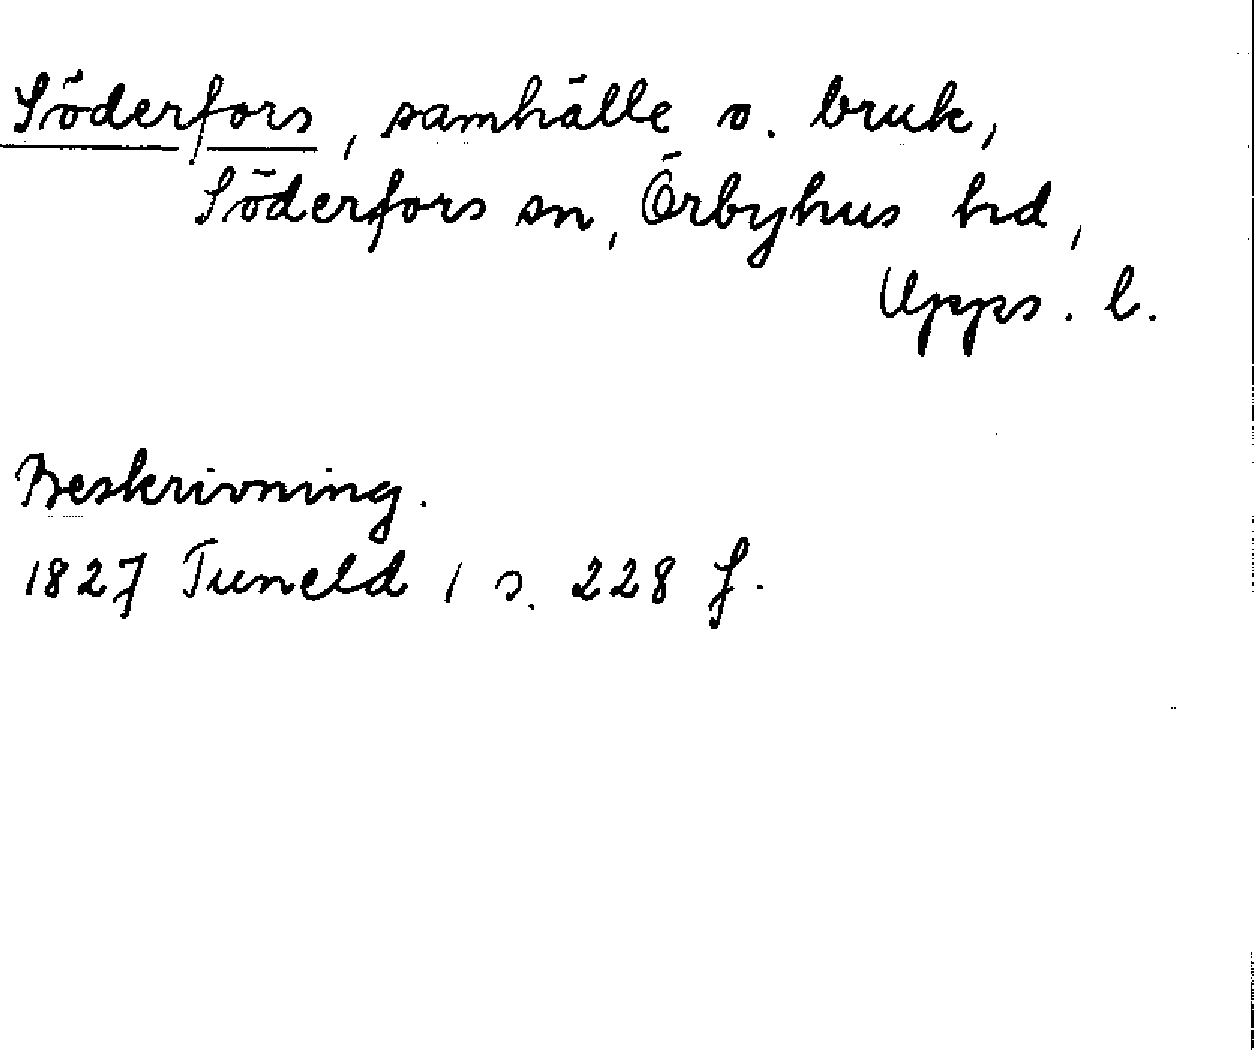 Söderfors, samhälle o. bruk,
Söderfors sn, Örbyhus hd,
Upps. l.
Beskrivning.
1827 Tuneld 1 s. 228 f.